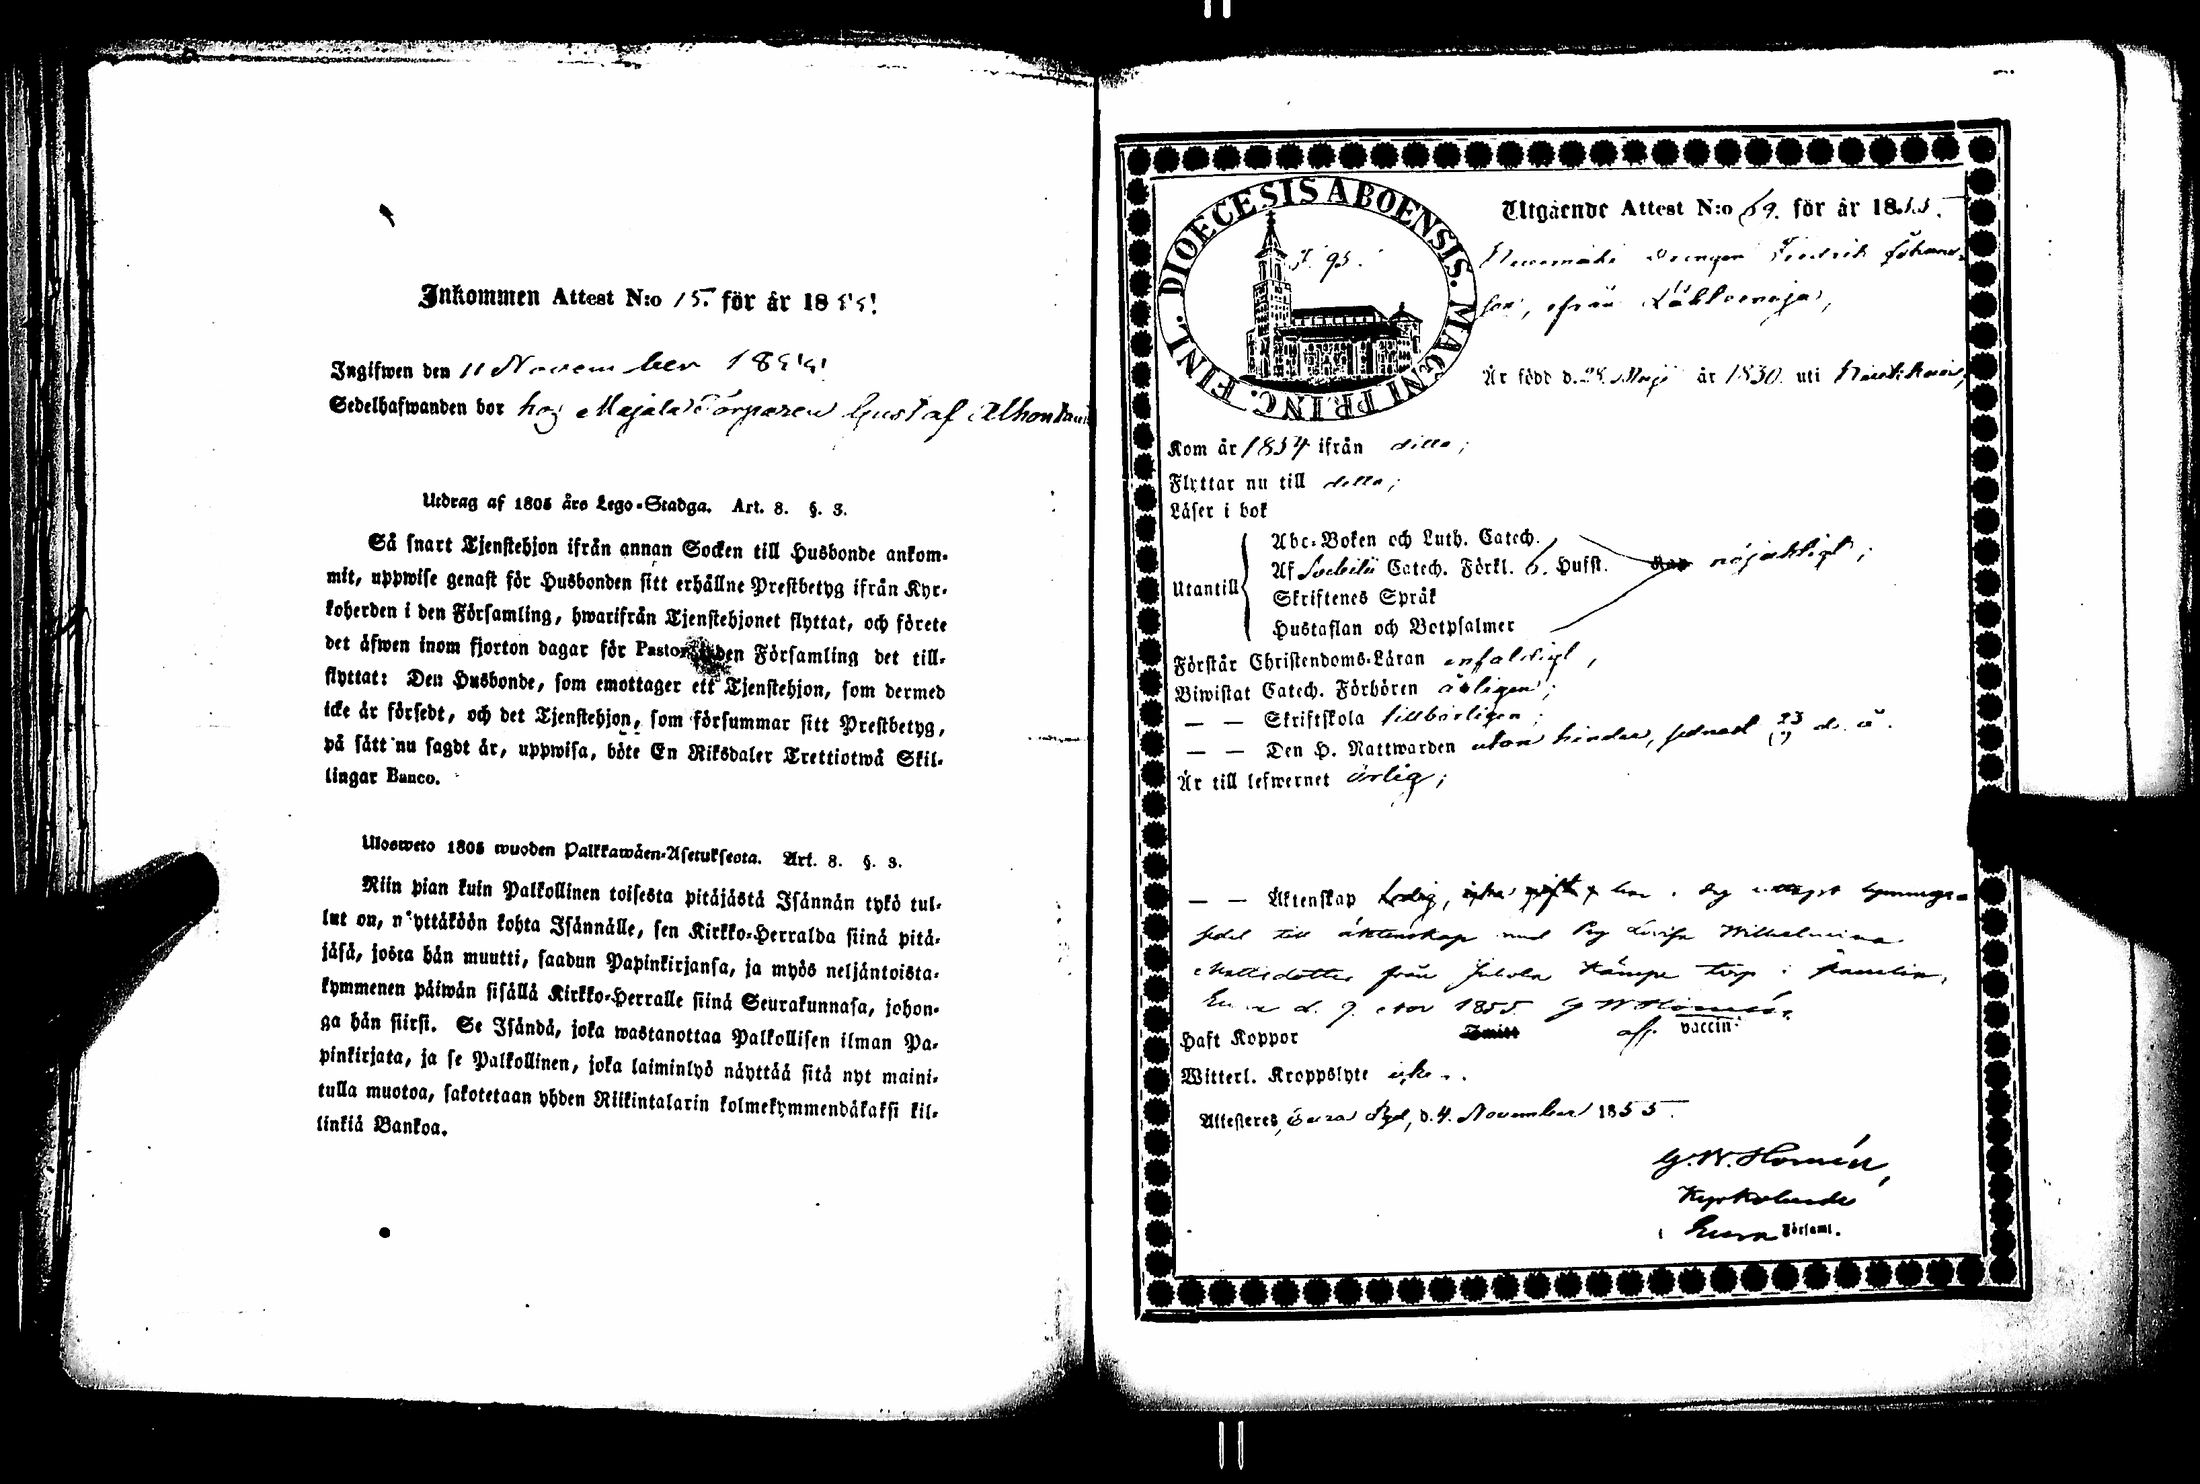 Inkommen Attest N:o 15. för år 1855!
Ingifwen den 11 November 1855!
Sedelhafwanden bor hos Majala Torparen Gustaf Alhonta
Utdrag af 1805 års Lego-Stadga. Art. 8. §. 3.
Så snart Tjenstehjon ifrån annan Socken till Husbonde ankom-
mit, uppwise genast för Husbonden sitt erhållne Prestbetyg ifrån Kyr-
koherden i den Församling, hwarifrån Tjenstehjonet flyttat, och förete
det äfwen inom fjorton dagar för Pastor den Församling det till-
flyttat: Den Husbonde, som emottager ett Tjenstehjon, som dermed
icke är försedt, och det Tjenstehjon, som försummar sitt Prestbetyg,
på sätt nu sagdt är, uppwisa, böte En Riksdaler Trettiotwå Skil-
lingar Banco.
Ulosweto 1805 wuoden Palkkawäen-Asetuksesta. Art. 8. §. 3.
Niin pian kuin Palkollinen toisesta pitäjästä Isännän tykö tul-
lut on, näyttäköön kohta Isännälle, sen Kirkko-Herralda siinä pitä-
jäsä, josta hän muutti, saadun Papinkirjansa, ja myös neljäntoista-
kymmenen päiwän sisällä Kirkko-Herralle siinä Seurakunnasa, johon-
ga hän siirsi. Se Isändä, joka wastanottaa Palkollisen ilman Pa-
pinkirjata, ja se Palkollinen, joka laiminlyö näyttää sitä nyt maini-
tulla muotoa, sakotetaan yhden Riikintalarin kolmekymmendäkaksi kil-
linkiä Bankoa.
DIOECESIS ABOENSIS. MAGNI PRINC. FINL.
Utgående Attest N:o 69. för år 1855.
Drengen Fredrik Johans-
son, ifrån
Är född d. 28 Maji år 1830. uti
Kom år 1854 ifrån ditto;
Flyttar nu till detta;
Läser i bok
Utantill
Abc-Boken och Luth. Catech.
Af Svebilii Catech. Förkl. 6. Husst. nöjaktigt;
Skriftenes Språk
Hustaflan och Botpsalmer
Förstår Christendoms-Läran enfaldigt,
Biwistat Catech. Förhören årligen;
— — Skriftskola tillbörligen;
— — Den H. Nattwarden utan hinder, sednast 23 d. å.
Är till lefwernet ärlig;
— — Äktenskap Ledig, har i dag uttagit lysnings-
sedel till äktenskap med Pig Lovisa Wilhelmina
Mattsdotter från Kämpe torp i
Eura d. 9. Nov 1855. G W Homén
Haft Koppor af vaccin:
Witterl. Kroppslyte icke.
Attesteres, Eura Pgd, d. 4. November 1855.
G. W. Homén,
Kyrkoherde
i Eura Församl.